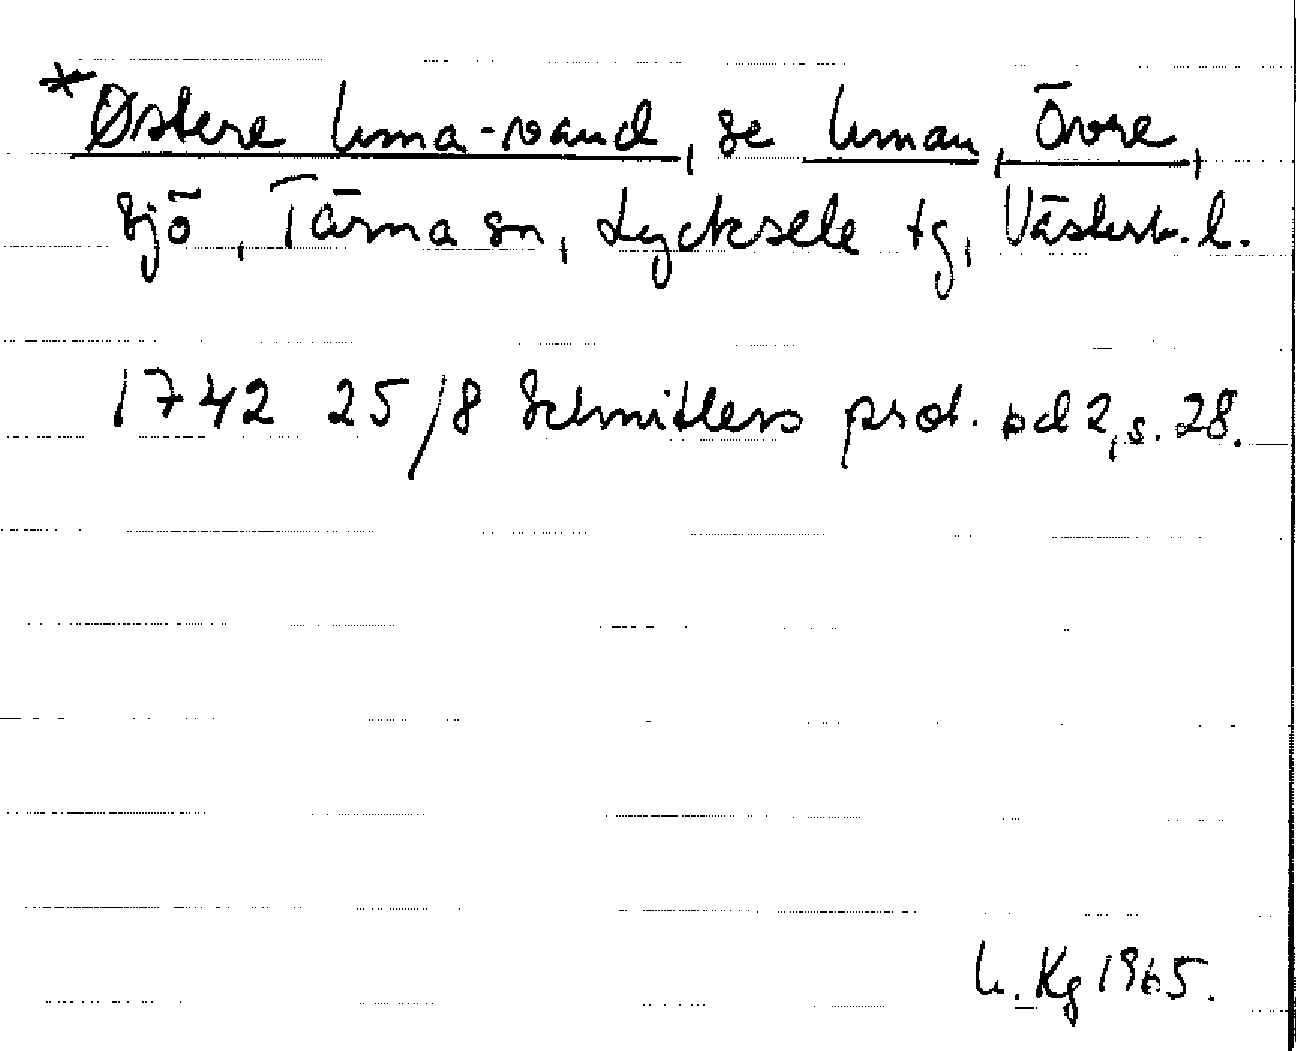 *Østere Uma-vand, se Uman, Övre,
sjö, Tärna sn, Lycksele tg, Västerb. l.
1742 25/8 Schnitlers prot. bd 2, s. 28.
U. Kg 1965.